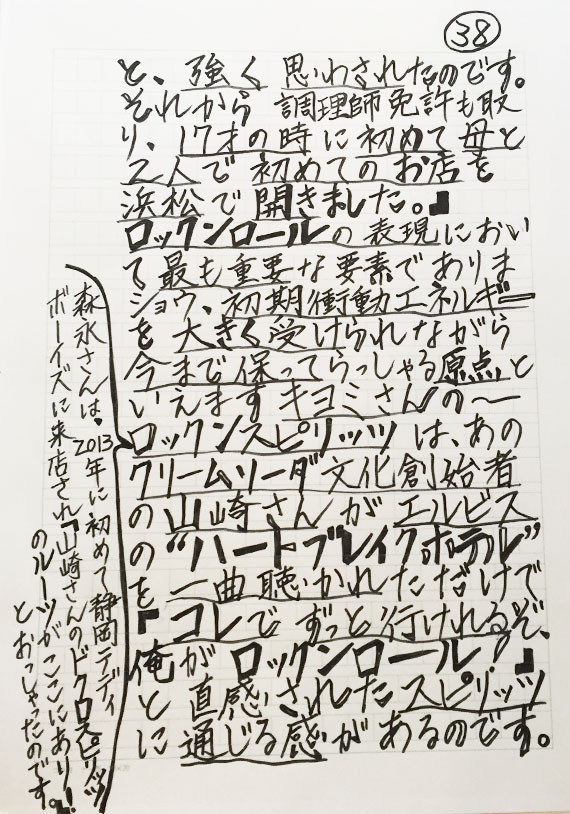 38
と、強く思わされたのです。
それから調理師免許も取
り、17才の時に初めて母と
2人で初めてのお店を
浜松で開きました。』
ロックンロールの表現におい
て最も重要な要素でありま
ショウ、初期衝動エネルギー
を大きく受けられながら
今まで保ってらっしゃる原点と
いえますキヨミさんの〜
ロックンスピリッツは、あの
クリームソーダ文化創始者
の山崎さんがエルビス
の“ハートブレイクホテル”
を一曲聴かれただけで
『コレでずっと行けれるぞ、
俺がロックンロール!』
と直感されたスピリッツ
に通じる感があるのです。
森永さんは、2013年に初めて静岡テディ
ボーイズに来店され『山崎さんのドクロスピリッツ
のルーツがここにあり!』
とおっしゃったのです。